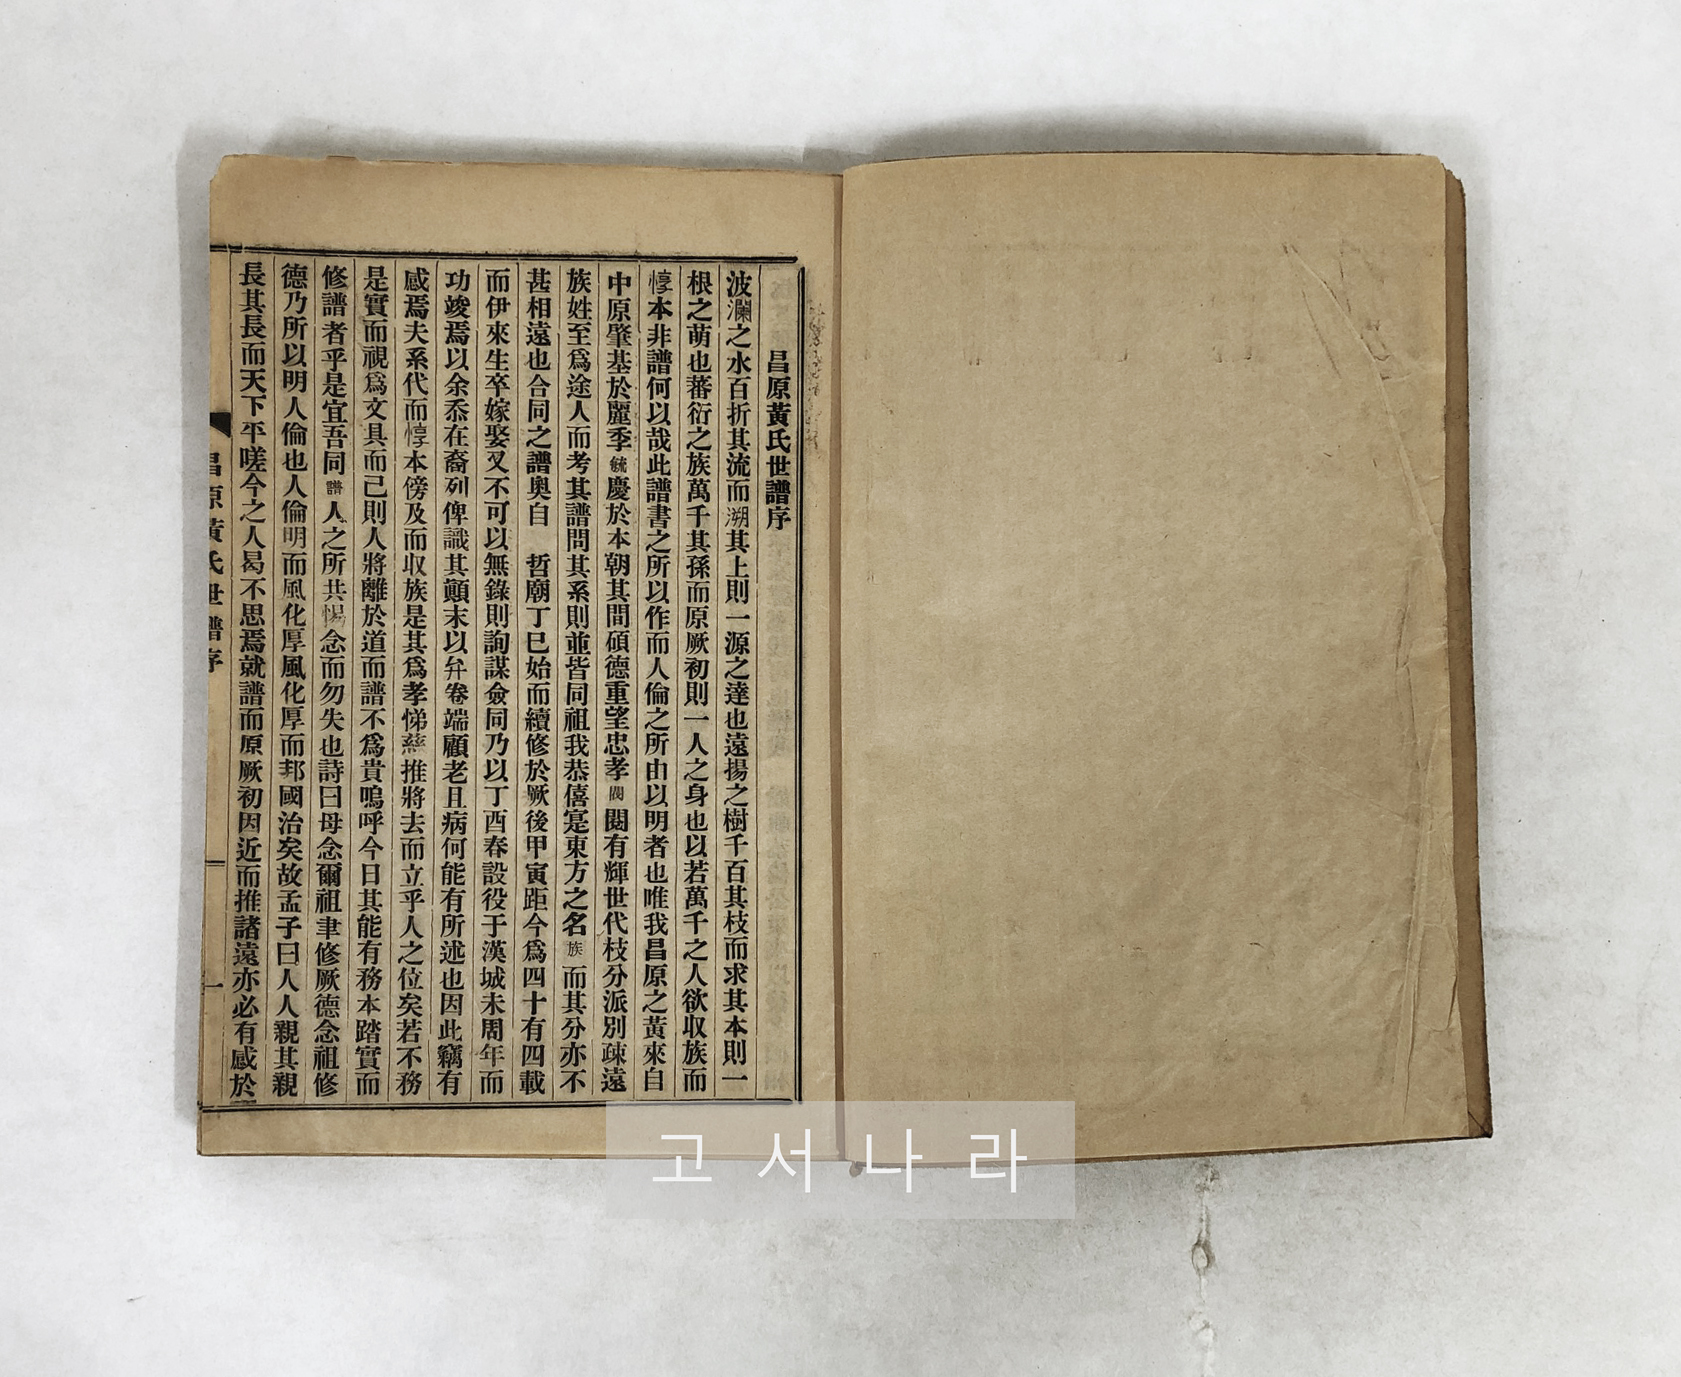 昌原黃氏世譜序
波瀾之水百折其流而溯其上則一源之達也遠揚之樹千百其枝而求其本則一
根之萌也蕃衍之族萬千其孫而原厥初則一人之身也以若萬千之人欲收族而
惇本非譜何以哉此譜書之所以作而人倫之所由以明者也唯我昌原之黃來自
中原肇基於麗季毓慶於本朝其間碩德重望忠孝閥閱有輝世代枝分派別疎遠
族姓至爲途人而考其譜問其系則並皆同祖我恭僖寔東方之名族而其分亦不
甚相遠也合同之譜奧自 哲廟丁巳始而續修於厥後甲寅距今爲四十有四載
而伊來生卒嫁娶又不可以無錄則詢謀僉同乃以丁酉春設役于漢城未周年而
功竣焉以余忝在裔列俾識其顚末以弁卷端顧老且病何能有所述也因此竊有
感焉夫系代而惇本傍及而収族是其爲孝悌慈推將去而立乎人之位矣若不務
是實而視爲文具而已則人將離於道而譜不爲貴嗚呼今日其能有務本踏實而
修譜者乎是宜吾同譜人之所共惕念而勿失也詩曰母念爾祖聿修厥德念祖修
德乃所以明人倫也人倫明而風化厚風化厚而邦國治矣故孟子曰人人親其親
長其長而天下平嗟今之人曷不思焉就譜而原厥初因近而推諸遠亦必有感於
昌原黃氏世譜序 一
고서나라